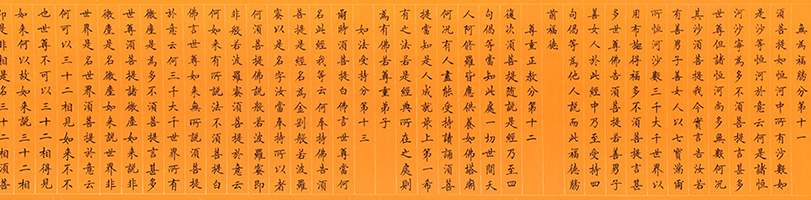 無為福勝分第十一
須菩提如恒河中所有沙數如
是沙等恒河於意云何是諸恒
河沙寧為多不須菩提言甚多
世尊但諸恒河尚多無數何況
其沙須菩提我今實言告汝若
有善男子善女人以七寶滿爾
所恒河沙數三千大千世界以
用布施得福多不須菩提言甚
多世尊佛告須菩提若善男子
善女人於此經中乃至受持四
句偈等為他人說而此福德勝
前福德
尊重正教分第十二
復次須菩提隨說是經乃至四
句偈等當知此處一切世間天
人阿脩羅皆應供養如佛塔廟
何況有人盡能受持讀誦須菩
提當知是人成就最上第一希
有之法若是經典所在之處則
為有佛若尊重弟子
如法受持分第十三
爾時須菩提白佛言世尊當何
名此經我等云何奉持佛告須
菩提是經名為金剛般若波羅
蜜以是名字汝當奉持所以者
何須菩提佛說般若波羅蜜即
非般若波羅蜜須菩提於意云
何如來有所說法不須菩提白
佛言世尊如來無所說須菩提
於意云何三千大千世界所有
微塵是為多不須菩提言甚多
世尊須菩提諸微塵如來說非
微塵是名微塵如來說世界非
世界是名世界須菩提於意云
何可以三十二相見如來不不
也世尊不可以三十二相得見
如來何以故如來說三十二相
即是非相是名三十二相須菩